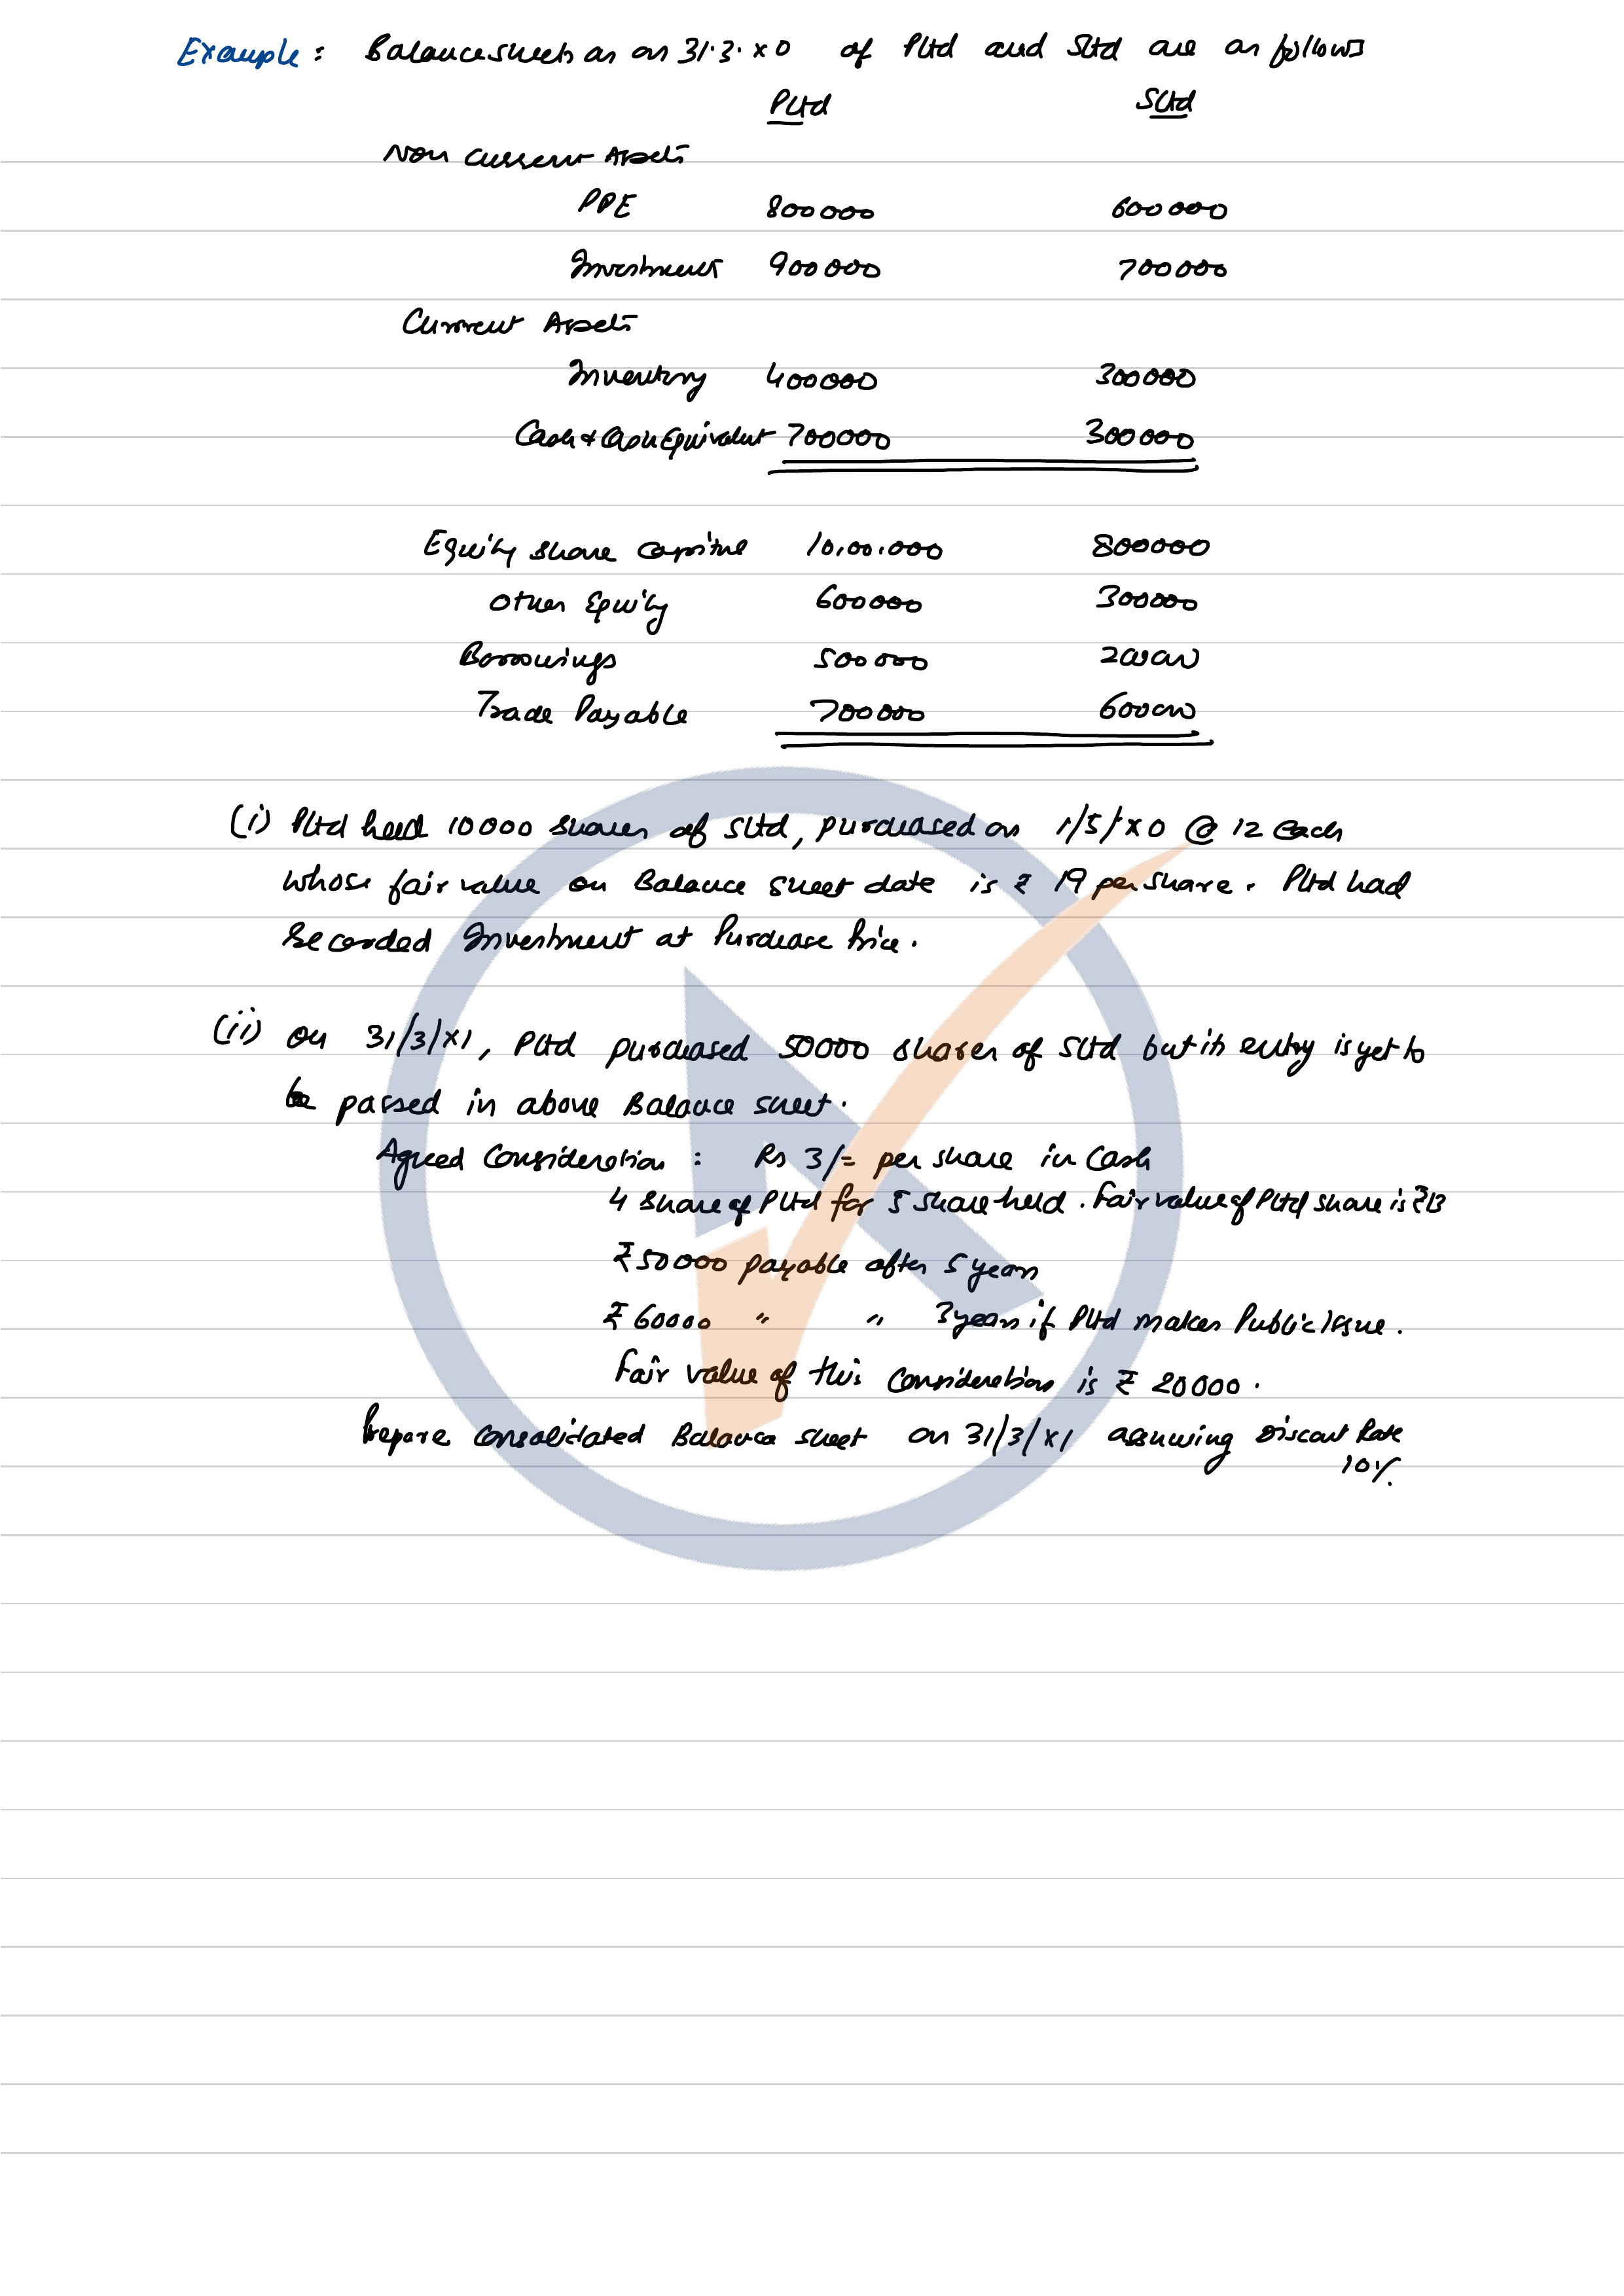 Example : Balancesheets as on 31.3.x0 of Pltd and Sltd are as follows
Pltd Sltd
Non Current Assets
PPE 800000 600000
Investment 900000 700000
Current Assets
Inventory 400000 300000
Cash & Cash Equivalent 700000 300000
Equity share capital 10,00,000 800000
Other Equity 600000 300000
Borrowings 500000 200000
Trade Payable 700000 600000
(i) Pltd held 10000 shares of Sltd, purchased on 1/5/x0 @ 12 each
whose fair value on Balance sheet date is ₹ 19 per share. Pltd had
recorded Investment at Purchase Price.
(ii) On 31/3/x1, Pltd purchased 50000 shares of Sltd but its entry is yet to
be passed in above Balance sheet.
Agreed Consideration : Rs 3/= per share in Cash
4 share of Pltd for 5 share held. Fair value of Pltd share is ₹13
₹50000 payable after 5 years
₹ 60000 " " 3 years if Pltd makes Public Issue.
Fair value of this consideration is ₹ 20000.
Prepare Consolidated Balance sheet on 31/3/x1 assuming Discount Rate
10%.